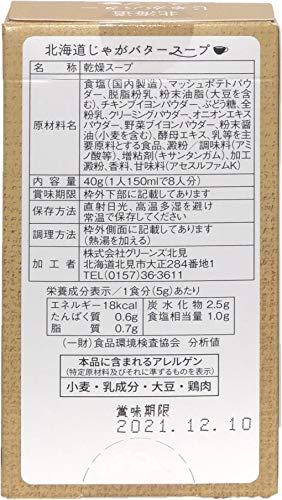 北海道じゃがバタースープ
名称 乾燥スープ
原材料名 食塩(国内製造)、マッシュポテトパウ
ダー、脱脂粉乳、粉末油脂(大豆を含
む)、チキンブイヨンパウダー、ぶどう糖、全
粉乳、クリーミングパウダー、オニオンエキス
パウダー、野菜ブイヨンパウダー、粉末醤
油(小麦を含む)、酵母エキス、乳等を主
要原料とする食品、澱粉/調味料(アミ
ノ酸等)、増粘剤(キサンタンガム)、加工
澱粉、香料、甘味料(アセスルファムK)
内容量 40g(1人150mlで8人分)
賞味期限 枠外下部に記載してあります
保存方法 直射日光、高温多湿を避け
常温で保存してください
調理方法 枠外側面に記載してあります
(熱湯を加える)
加工者 株式会社グリーンズ北見
北海道北見市大正284番地1
TEL(0157)36-3611
栄養成分表示/1食分(5g)あたり
エネルギー18kcal 炭水化物 2.5g
たんぱく質 0.6g 食塩相当量 1.0g
脂質 0.7g
(一財)食品環境検査協会 分析値
本品に含まれるアレルゲン
(特定原材料及びそれに準ずるものを表示)
小麦・乳成分・大豆・鶏肉
賞味期限
2021.12.10